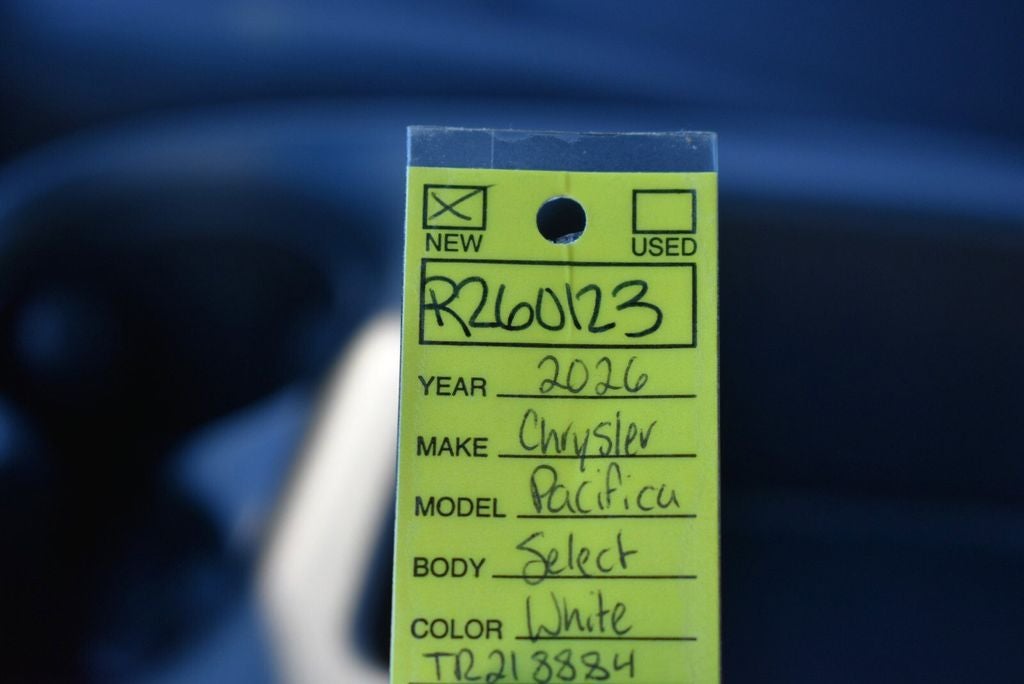 NEW USED
R260123
YEAR 2026
MAKE Chrysler
MODEL Pacifica
BODY Select
COLOR White
TR218884